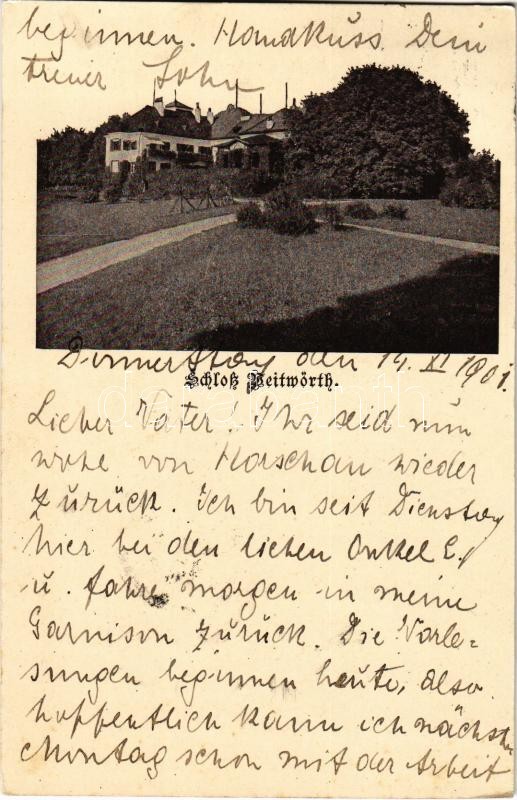 beginnen. Handkuss. Dein
treuer Sohn
Donnerstag den 14. XI 1901.
Schloß Peitwörth.
Lieber Vater! Ihr seid nun
wohl von Haschau wieder
zurück. Ich bin seit Dienstag
hier bei den lieben Onkel E.
u. fahre morgen in meine
Garnison zurück. Die Vorle=
sungen beginnen heute, also
hoffentlich kann ich nächsten
Montag schon mit der Arbeit